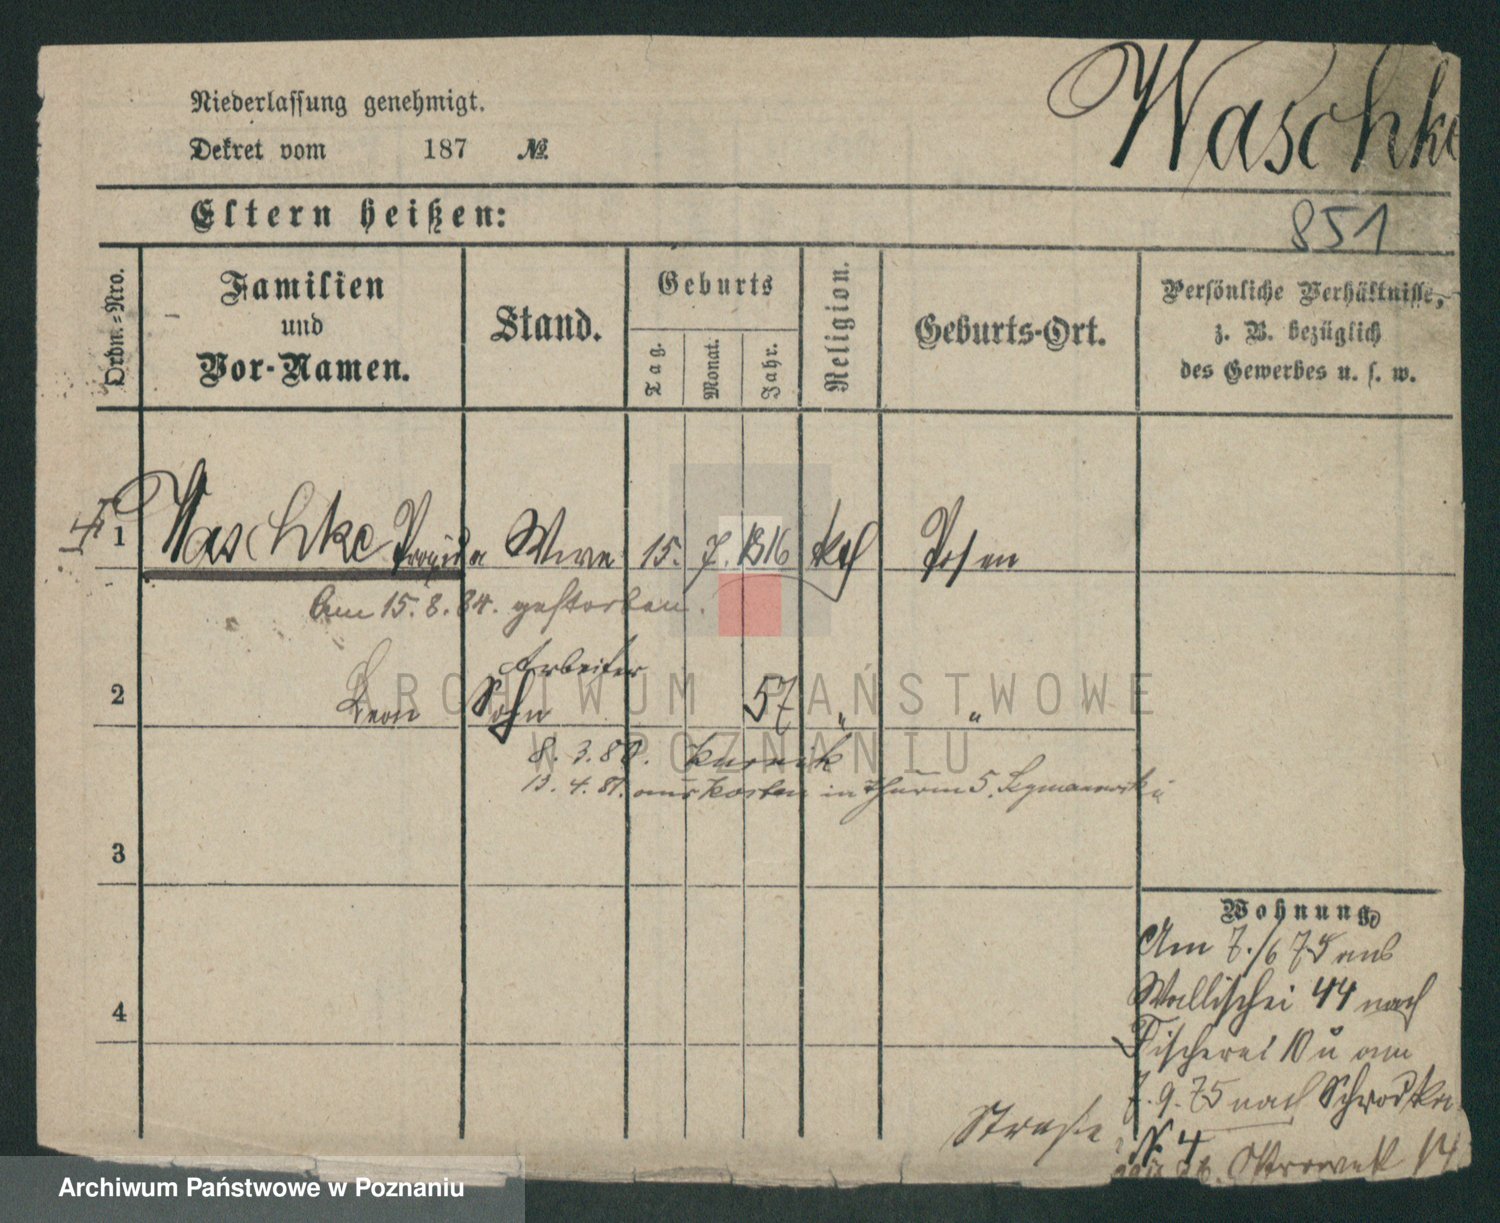 Niederlassung genehmigt.
Dekret vom 187 №
Waschke
851
Eltern heißen:
Ordn.-Nro.
Familien und Vor-Namen.
Stand.
Geburts
Tag.
Monat.
Jahr.
Religion.
Geburts-Ort.
Persönliche Verhältnisse,
z. B. bezüglich
des Gewerbes u. s. w.
1 Waschke Stwe 15. 7. 1816 kth Posen
Am 15. 8. 84. gestorben.
Arbeiter
2 Leon Sohn 57 " "
8. 3. 80. Kurnik
13. 4. 81. aus Kosten in Thurm 5.
3
4
Wohnung
Am 7./6 75 aus
Wallischei 44 nach
Fischerei 10 u am
7. 9. 75 nach Schrodka
Straße № 4
Ostrowek 14
ARCHIWUM PAŃSTWOWE
W POZNANIU
Archiwum Państwowe w Poznaniu